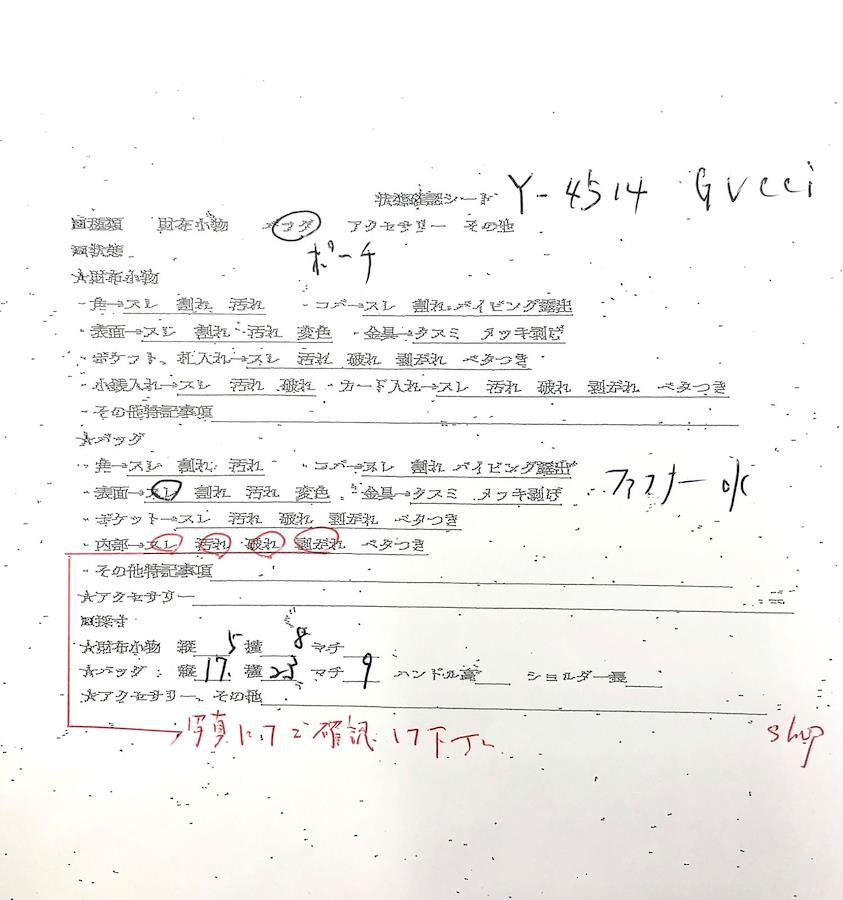 状態確認シート Y-4514 GUCCI
■種類 財布小物 バッグ アクセサリー その他
ポーチ
■状態
★財布小物
・角→スレ 割れ 汚れ ・コバ→スレ 割れ パイピング露出
・表面→スレ 割れ 汚れ 変色 ・金具→クスミ メッキ剥げ
・ポケット、札入れ→スレ 汚れ 破れ 剥がれ ベタつき
・小銭入れ→スレ 汚れ 破れ ・カード入れ→スレ 汚れ 破れ 剥がれ ベタつき
・その他特記事項
★バッグ
・角→スレ 割れ 汚れ ・コバ→スレ 割れ パイピング露出
・表面→スレ 割れ 汚れ 変色 ・金具→クスミ メッキ剥げ ファスナー ok
・ポケット→スレ 汚れ 破れ 剥がれ ベタつき
・内部→スレ 汚れ 破れ 剥がれ ベタつき
・その他特記事項
★アクセサリー
■採寸
★財布小物 縦 5 横 8 マチ
★バッグ: 縦 17. 横 23 マチ 9 ハンドル高 ショルダー長
★アクセサリー、その他
写真にてご確認下さい
shop